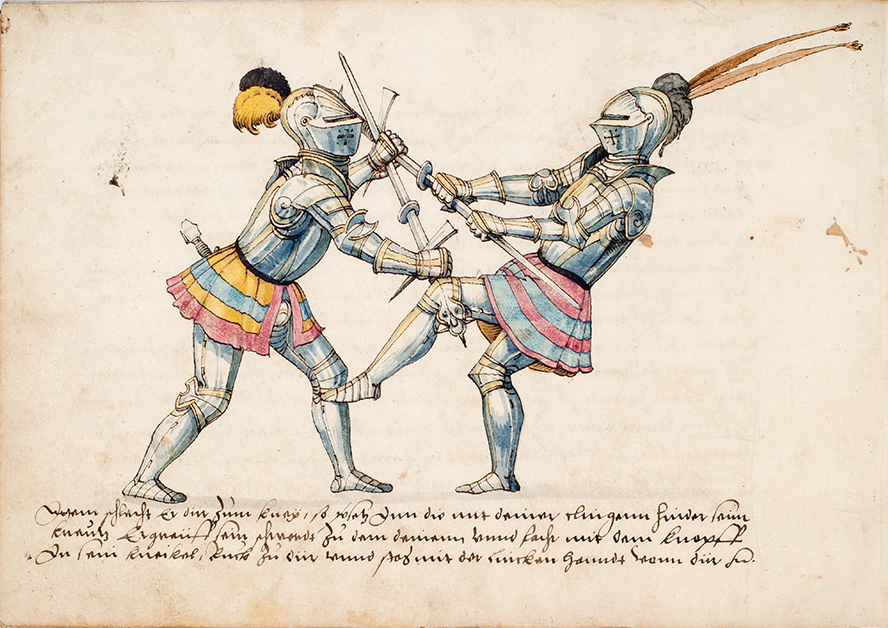 Item schlecht Er dir zum kney, so setz Im die mit deiner clingenn hinder seim
kreutz Ergreiff sein schwerdt zu dem deinem vnnd fach mit dem knopff
In sein kneikel, Ruck zu dir vnnd stos mit der lincken handt vonn dir